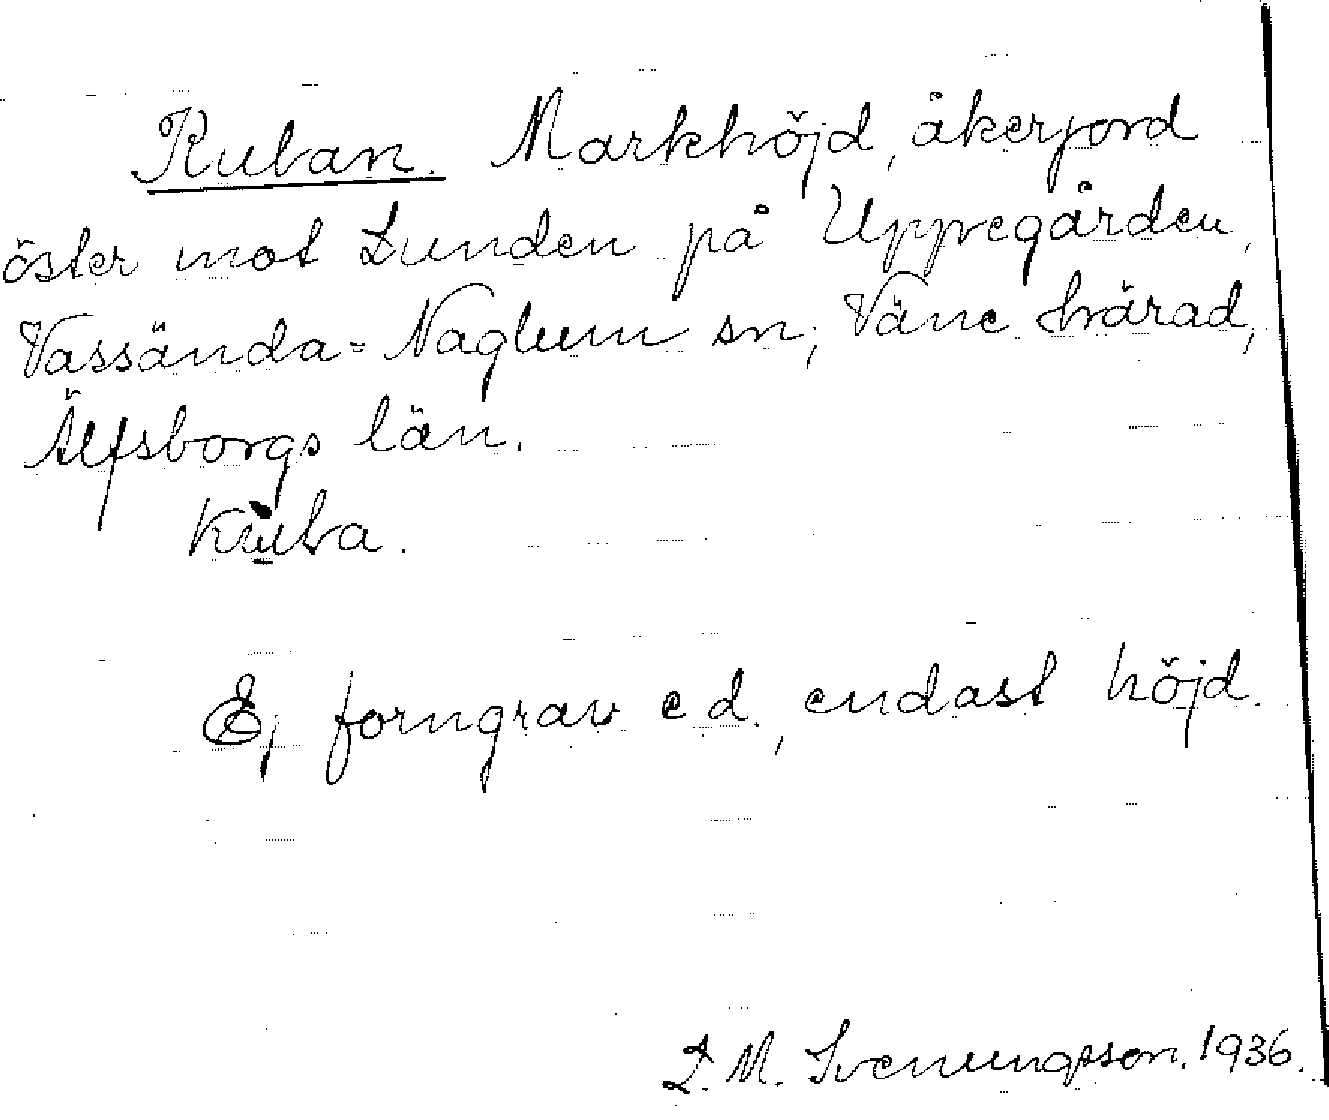 Kuban. Markhöjd, åkerjord
öster mot Lunden på Uppegården,
Vassända-Naglum sn, Väne härad,
Älfsborgs län.
Kuba.
Ej forngrav e d., endast höjd.
L. M. Svenungsson. 1936.